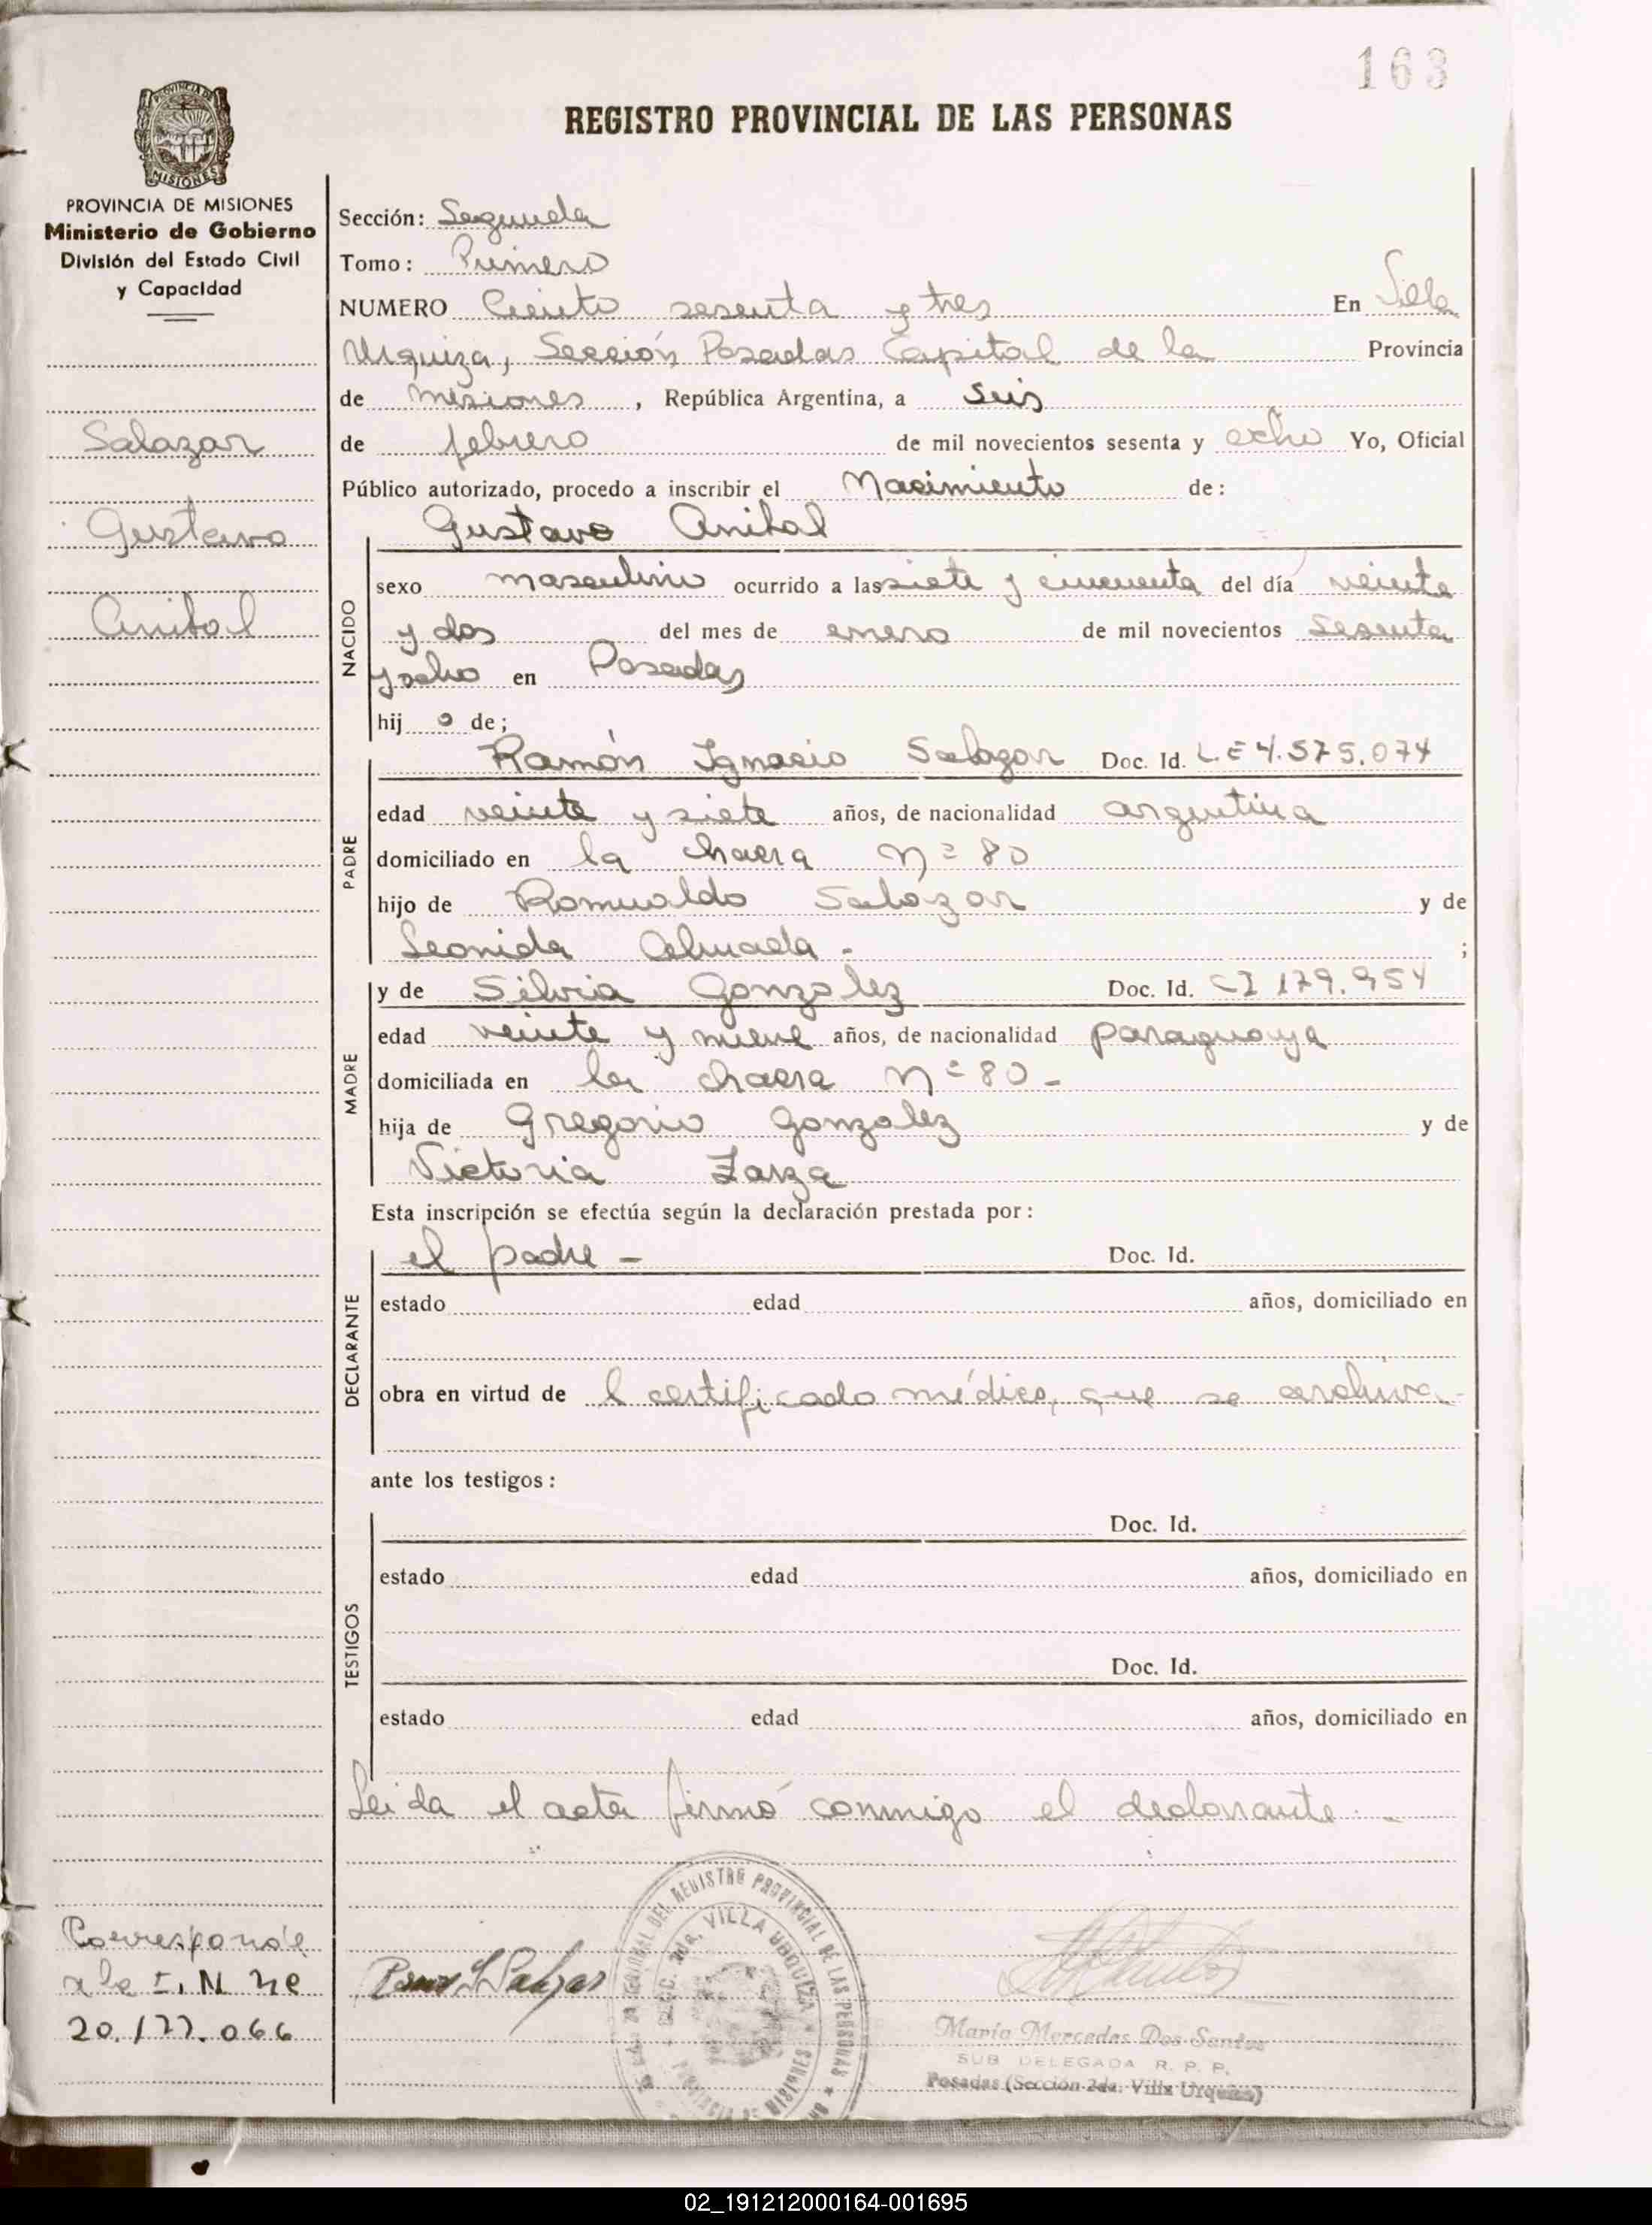 163
REGISTRO PROVINCIAL DE LAS PERSONAS
PROVINCIA DE MISIONES
Ministerio de Gobierno
División del Estado Civil
y Capacidad
Salazar
Gustavo
Anibal
Sección: Segunda
Tomo: Primero
NUMERO Ciento sesenta y tres En Villa
Urquiza, Sección Posadas Capital de la Provincia
de misiones, República Argentina, a Seis
de febrero de mil novecientos sesenta y ocho Yo, Oficial
Público autorizado, procedo a inscribir el Nacimiento de:
Gustavo Anibal
NACIDO
sexo masculino ocurrido a las siete y cincuenta del día veinte
y dos del mes de enero de mil novecientos sesenta
y ocho en Posadas
hij o de;
Ramón Ignacio Salazar Doc. Id. L.E 4.575.074
PADRE
edad veinte y siete años, de nacionalidad argentina
domiciliado en la chacra nº 80
hijo de Romualdo Salazar y de
Leonida Ahuada - ;
MADRE
y de Silvia Gonzalez Doc. Id. CI 179.954
edad veinte y nueve años, de nacionalidad paraguaya
domiciliada en la chacra nº 80 -
hija de Gregorio Gonzalez y de
Victoria Zarza
Esta inscripción se efectúa según la declaración prestada por:
el padre - Doc. Id.
DECLARANTE
estado edad años, domiciliado en
obra en virtud de l certificado médico, que se archiva -
ante los testigos:
Doc. Id.
TESTIGOS
estado edad años, domiciliado en
Doc. Id.
estado edad años, domiciliado en
Leida el acta firmó conmigo el declarante. -
Corresponde
a la I. N ne
20.177.066
VILLA URQUIZA
María Mercedes Dos Santos
SUB DELEGADA R. P. P.
Posadas (Sección 2da. Villa Urquiza)
02_191212000164-001695